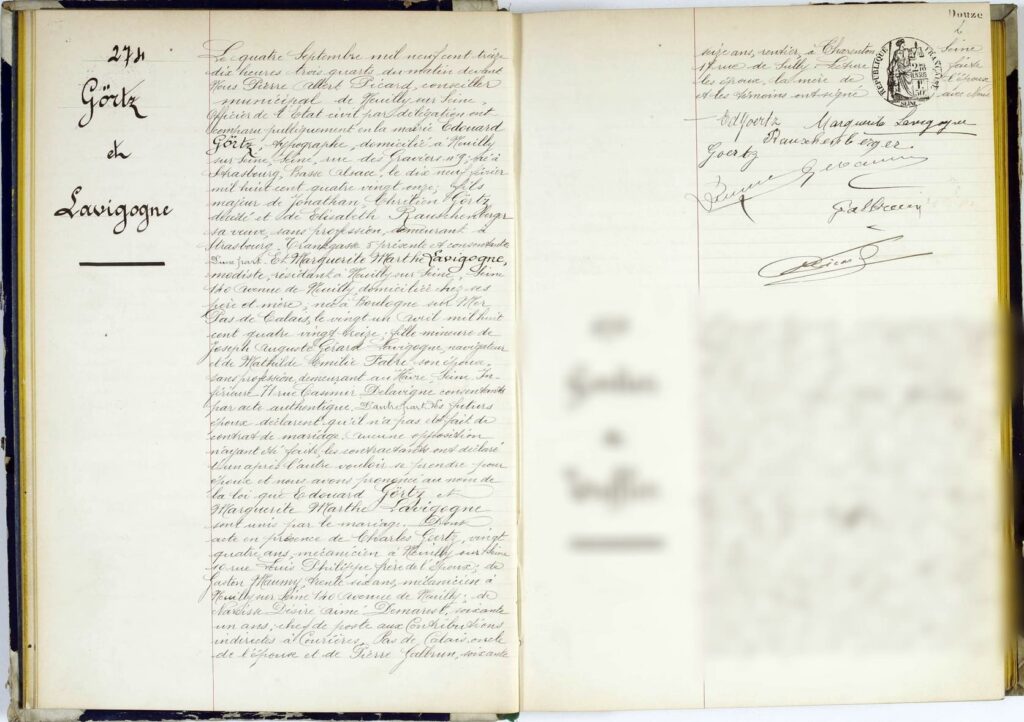 274
Görtz
et
Lavigogne
Le quatre Septembre mil neuf cent treize
dix heures trois quarts du matin devant
Nous Pierre Albert Picard, conseiller
municipal de Neuilly sur Seine,
Officier de l'Etat civil par délégation ont
comparu publiquement en la mairie Edouard
Görtz, typographe, domicilié à Neuilly
sur Seine, Seine, rue des Graviers nº 9; né à
Strasbourg, Basse Alsace, le dix neuf février
mil huit cent quatre vingt onze; fils
majeur de Jonathan Chrétien Görtz
décédé et de Elisabeth Rauschenberger
sa veuve, sans profession, demeurant à
Strasbourg, 5 présente et consentante
D'une part. Et Marguerite Marthe Lavigogne,
modiste, résidant à Neuilly sur Seine, Seine
140 avenue de Neuilly, domiciliée chez ses
père et mère; née à Boulogne sur Mer
Pas de Calais, le vingt un avril mil huit
cent quatre vingt treize; fille mineure de
Joseph Auguste Gérard Lavigogne, navigateur
et de Mathilde Emilie Fabre son épouse,
sans profession, demeurant au Havre, Seine In-
férieure 71 rue Casimir Delavigne consentants
par acte authentique. D'autre part. Les futurs
époux déclarent qu'il n'a pas été fait de
contrat de mariage. Aucune opposition
n'ayant été faite, les contractants ont déclaré
l'un après l'autre vouloir se prendre pour
époux et nous avons prononcé au nom de
la loi que Edouard Görtz et
Marguerite Marthe Lavigogne
sont unis par le mariage. Dont
acte en présence de Charles Goertz, vingt
quatre ans, mécanicien à Neuilly sur Seine
rue Louis Philippe frère de l'époux; de
Gaston Maumy, trente six ans, mécanicien à
Neuilly sur Seine 140 avenue de Neuilly; de
Narcisse Désiré Aimé Demarest, soixante
un ans, chef de poste aux Contributions
indirectes à Courrières, Pas de Calais, oncle
de l'épouse et de Pierre Galbrun, soixante
Douze
seize ans, rentier, à Charenton Seine
17 rue de Sully. Lecture faite
les époux, la mère de l'époux
et les témoins ont signé avec Nous
RÉPUBLIQUE FRANÇAISE
SEINE
Ed Goertz Marguerite Lavigogne
Goertz Rauschenberger
Galbrun
Picard